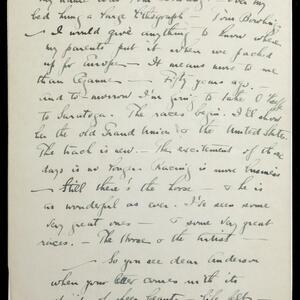 my name was
bed hung a large lithograph — Tom Bowling.
— I would give anything to know where
my parents put it when we packed
up for Europe — It means more to me
than Cezanne — Fifty years ago —
and to-morrow I'm going to take O'Keeffe
to Saratoga. The races begin. I'll show
her the old Grand Union & the United States.
The track is new. — The excitement of those
days is no longer. Racing is mere business
— Still there's the horse — & he is
as wonderful as ever. I've seen some
very great ones — & some very great
races. — The Horse & the Artist —
— So you see dear Anderson
when your letter comes with its